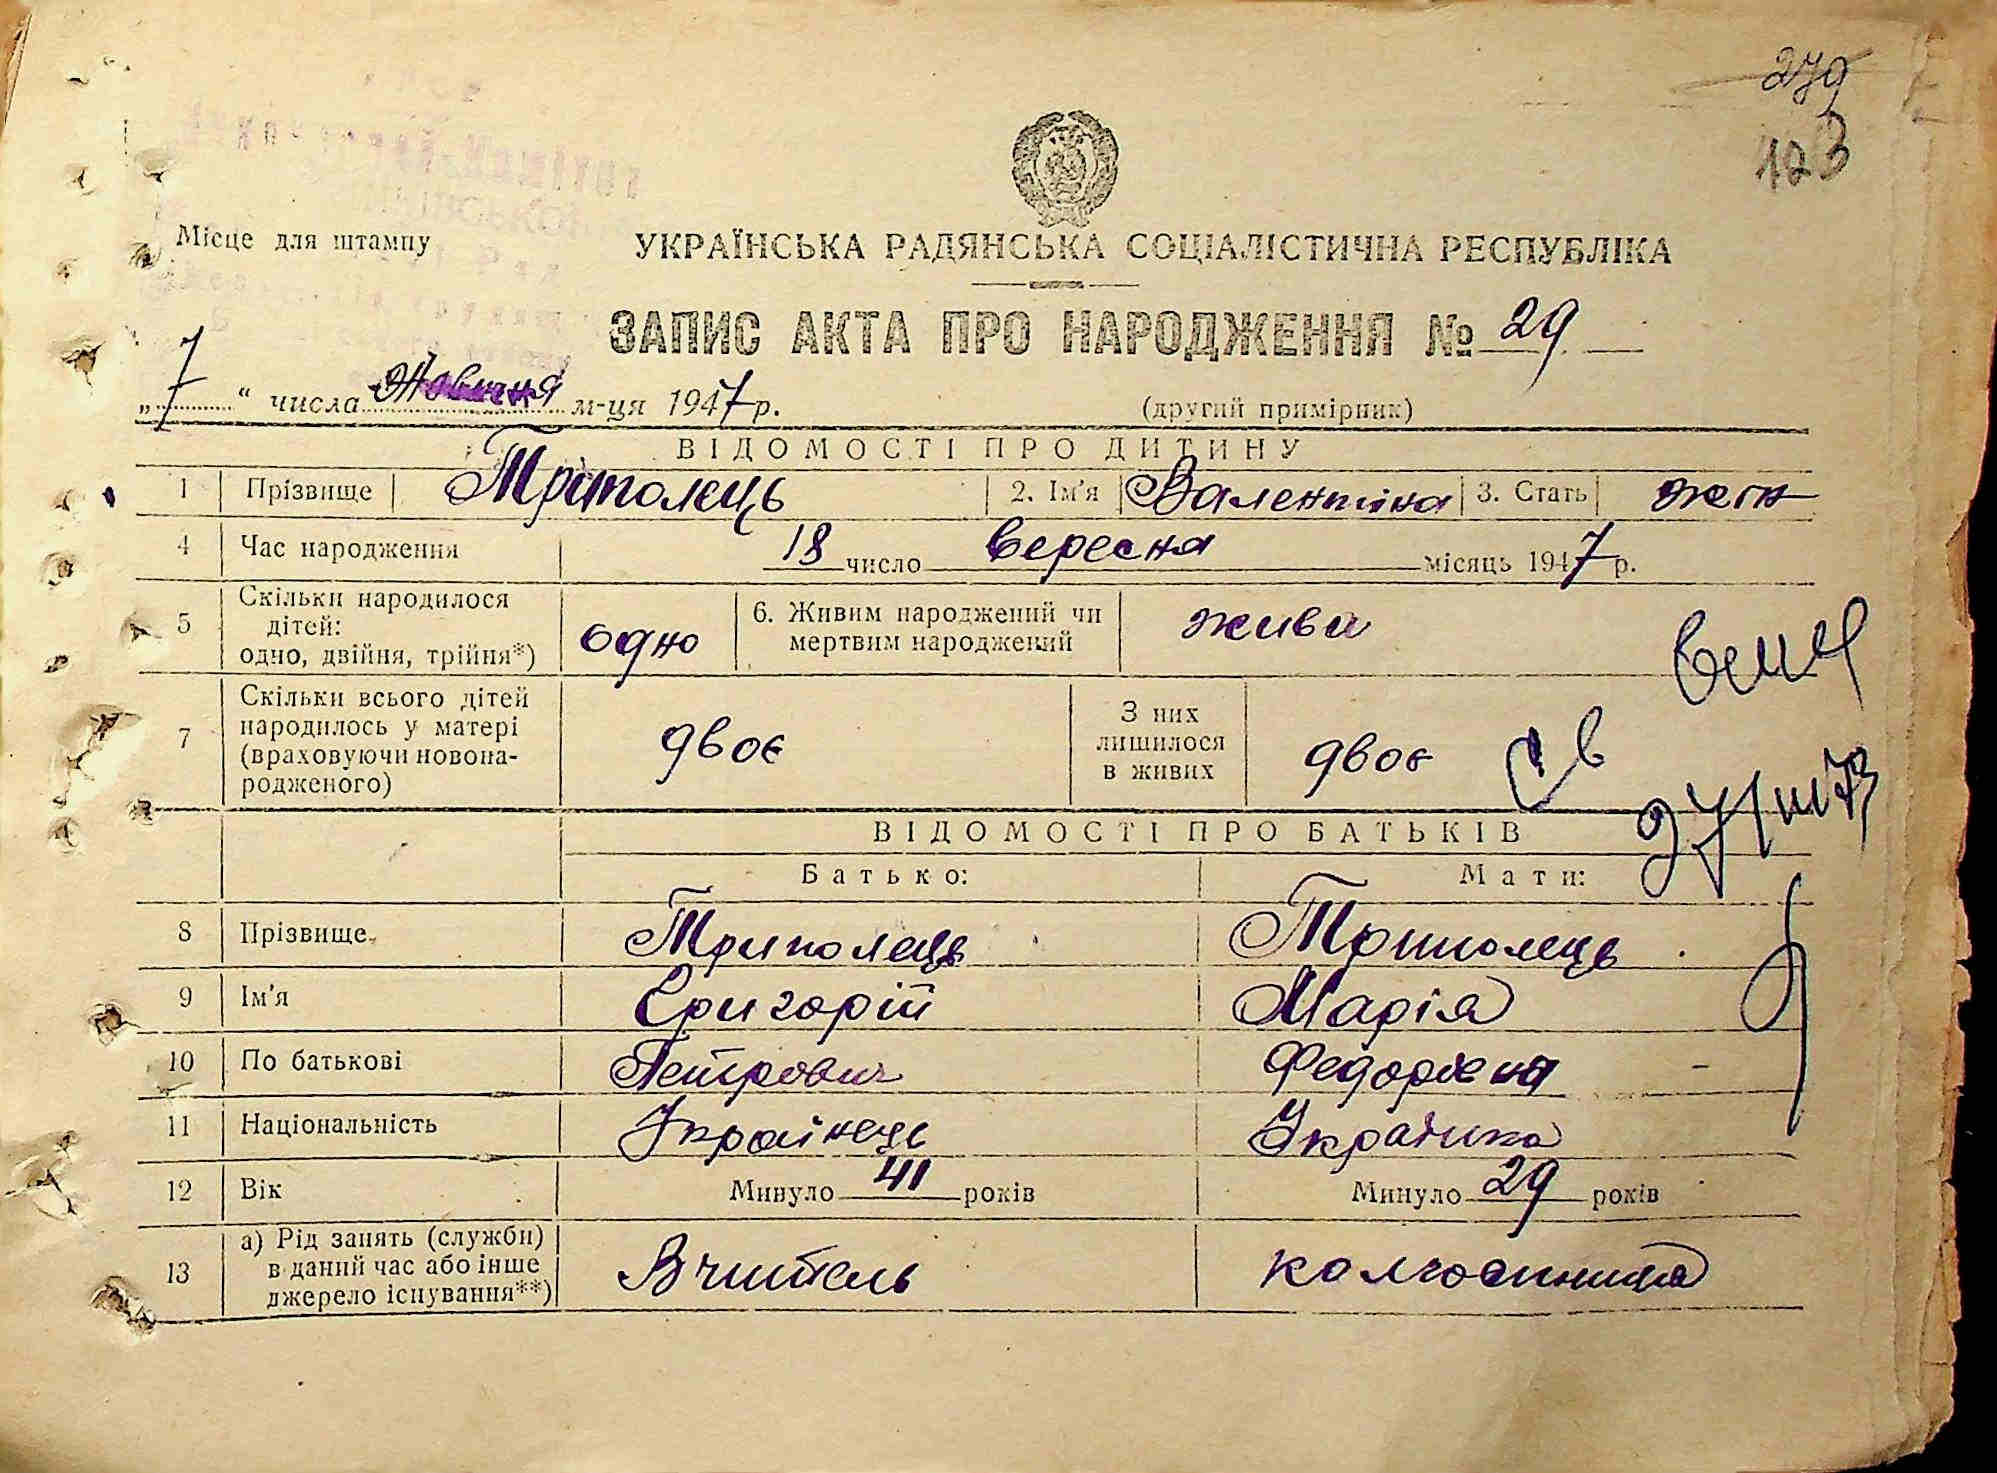 279
123
Місце для штампу
УКРАЇНСЬКА РАДЯНСЬКА СОЦІАЛІСТИЧНА РЕСПУБЛІКА
ЗАПИС АКТА ПРО НАРОДЖЕННЯ № 29
„7“ числа Жовтня м-ця 1947 р.
(другий примірник)
ВІДОМОСТІ ПРО ДИТИНУ
1 Прізвище Триполець 2. Ім'я Валентина 3. Стать жен
4 Час народження 18 число вересня місяць 1947 р.
5 Скільки народилося дітей: одно, двійня, трійня*) одно 6. Живим народжений чи мертвим народжений жива
7 Скільки всього дітей народилось у матері (враховуючи новонародженого) двоє З них лишилося в живих двоє
ВІДОМОСТІ ПРО БАТЬКІВ
Батько: Мати:
8 Прізвище Триполець Триполець
9 Ім'я Григорій Марія
10 По батькові Петрович Федорівна
11 Національність Українець Українка
12 Вік Минуло 41 років Минуло 29 років
13 а) Рід занять (служби) в даний час або інше джерело існування**) Вчитель колгоспниця